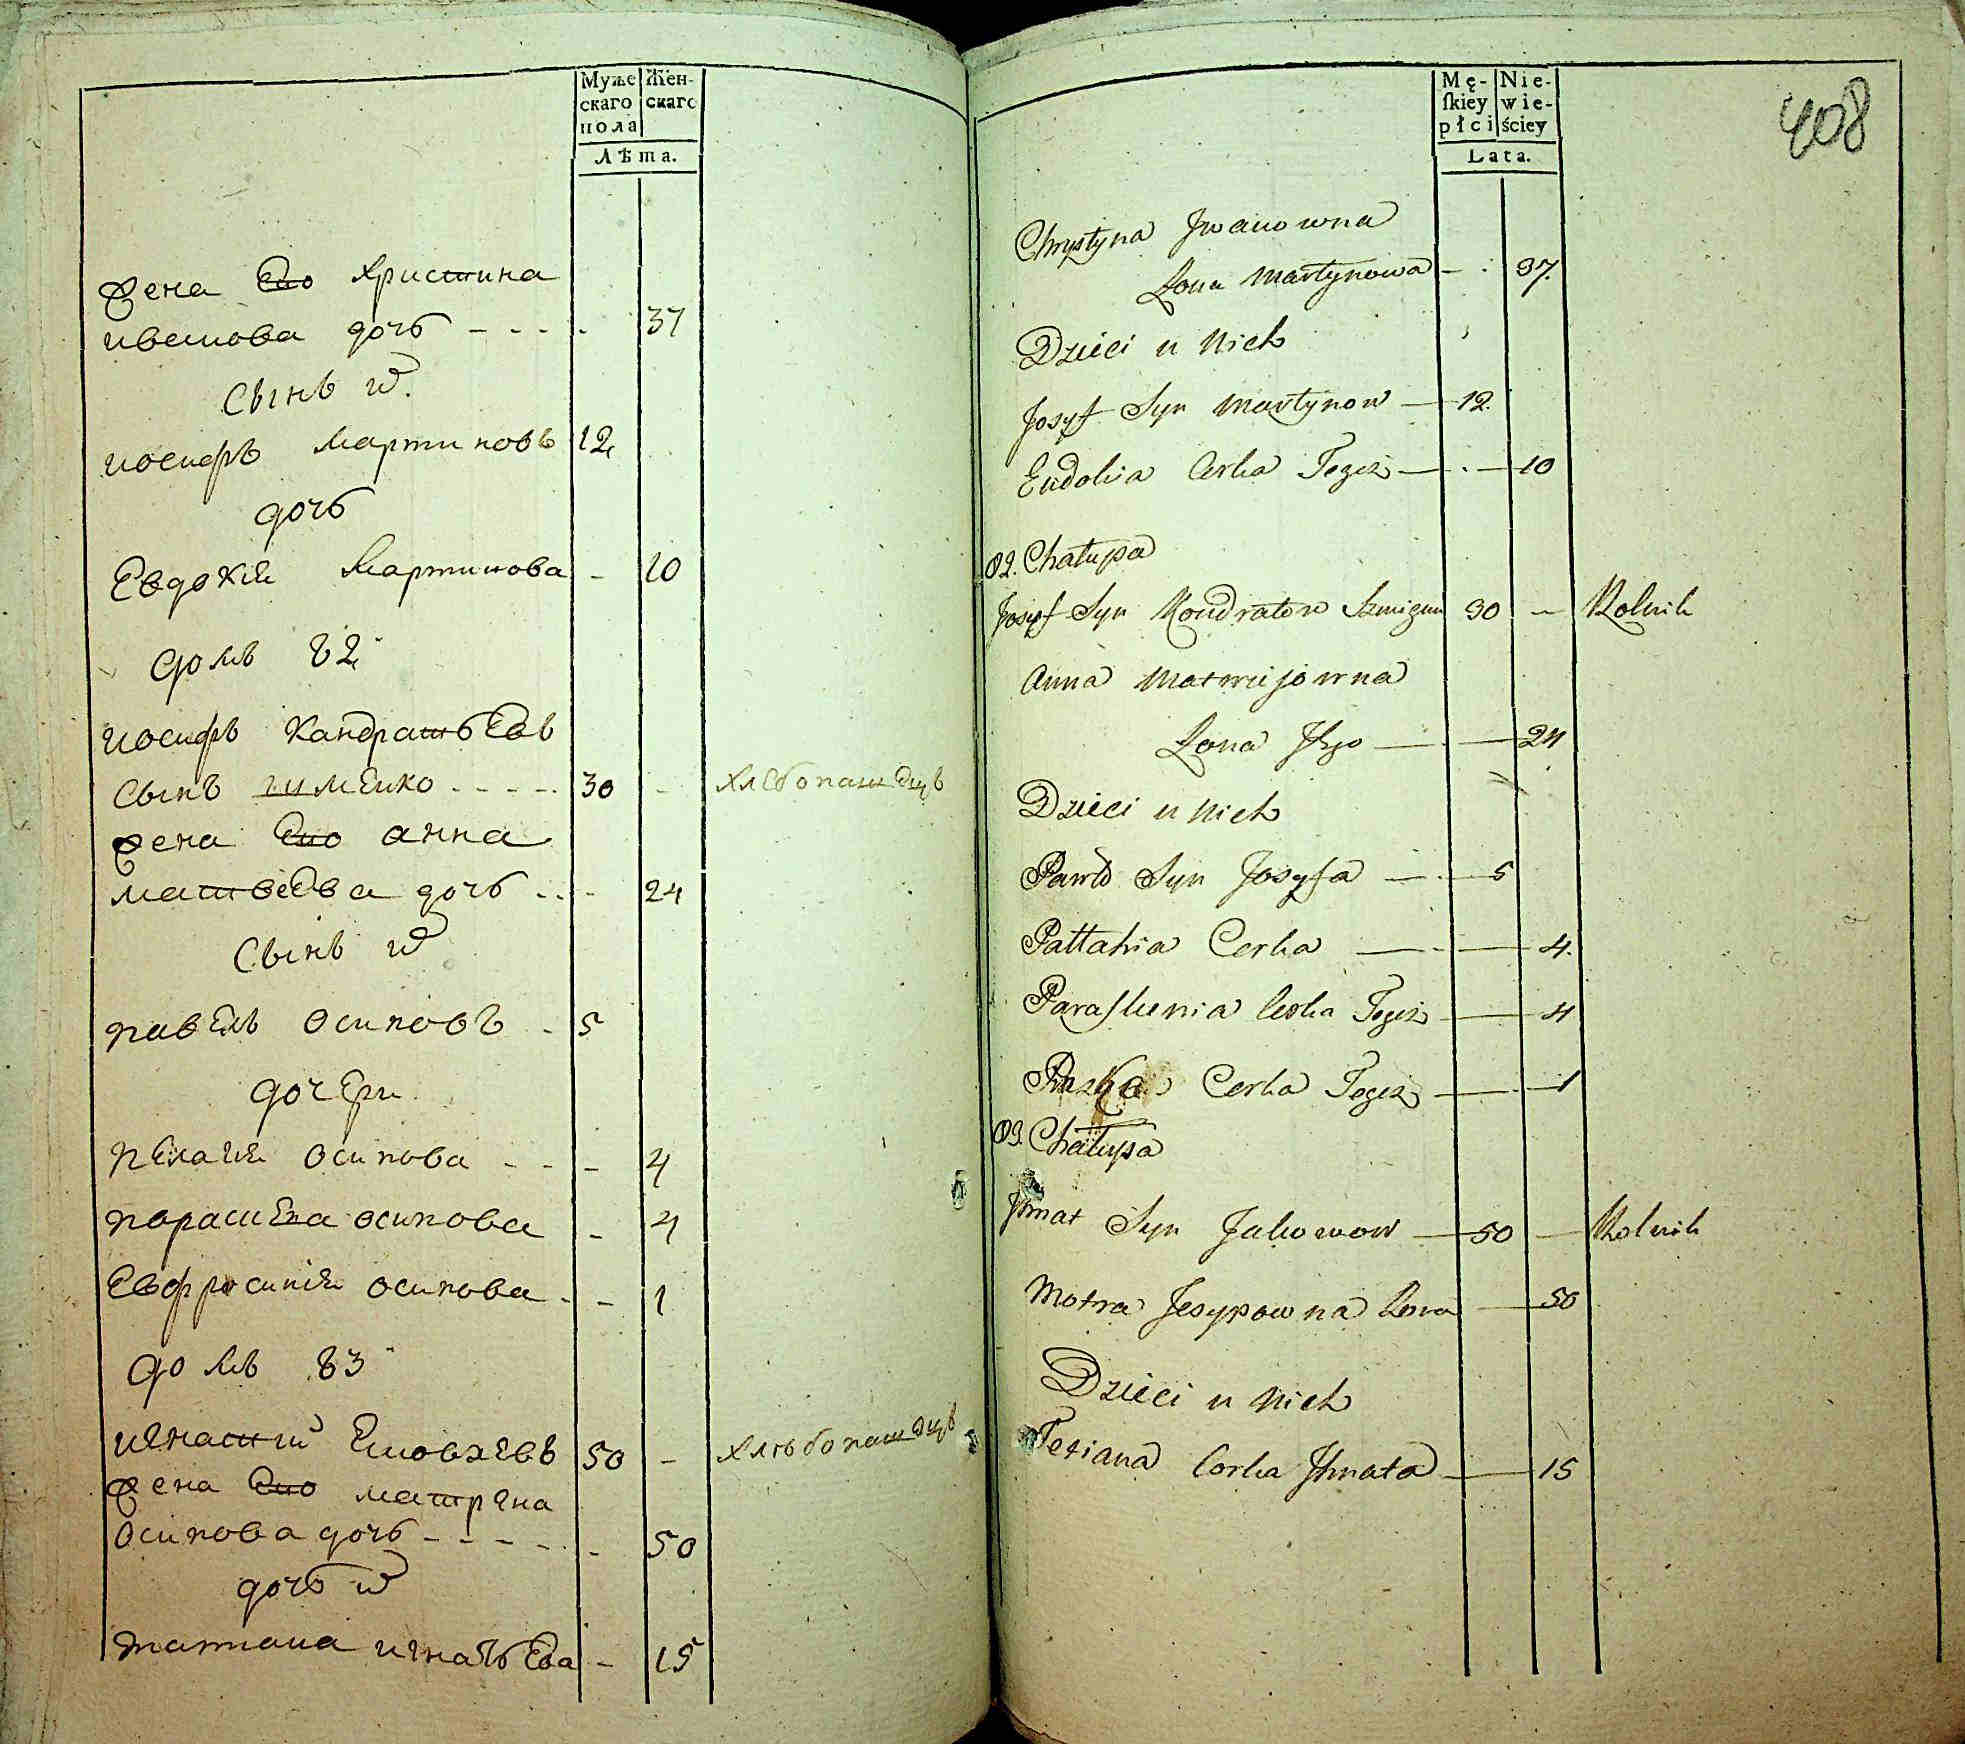 Муже Жен-
скаго скаго
пола
Лѣта.
жена его христина
иванова дочь - - - - 37
Сынъ их
иосифъ мартиновъ 12
дочь
Евдокия Мартинова - 10
домъ 82
иосифъ Кандратьевъ
Сынъ - - - - 30 - хлебопашецъ
жена его анна
матвеева дочь - - - 24
Сынъ их
павелъ осиповъ - 5
дочери
пелагия осипова - - - 4
осипова - 4
Евфросиния осипова - - 1
домъ 83
игнатий 50 - хлѣбопашецъ
жена его матрена
осипова дочь - - - - - - 50
дочь их
татиана игнатьева - 15
408
Mę- Nie-
ſkiey wie-
płci ściey
Lata.
Chrystyna Iwanowna
Żona Martynowa - 37.
Dzieci u Nich
Josyf Syn Martynow — 12.
Eudokia Corka Tegoż — - — 10
82. Chałupa
Josyf Syn Kondratow 30 — Rolnik
Anna Matwiejowna
Żona Jego — — 24
Dzieci u Nich
Paweł Syn Josyfa — — 5
Pałłahia Corka — — 4.
Paraskewia Corka Tegoż — 4
Corka Tegoż — 1
83. Chałupa
Ihnat Syn Jakowow — 50 — Rolnik
Motra Jesypowna Żona — 50
Dzieci u Nich
Tetiana Corka Ihnata — 15